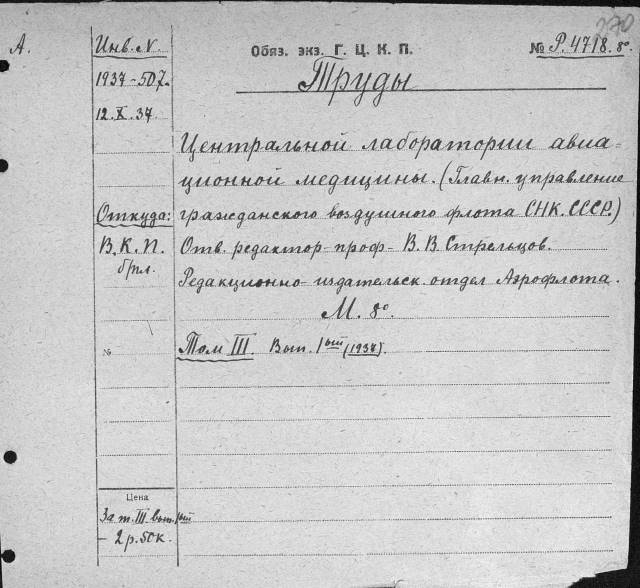 270
А.
Инв. N.
Обяз. экз. Г. Ц. К. П.
№ Р. 4718. 8°.
1937-507.
Труды
12. X. 37.
Центральной лаборатории авиа=
ционной медицины. (Главн. управление
Откуда:
гражданского воздушного флота СНК. СССР.)
В. К. П.
Отв. редактор- проф- В. В. Стрельцов.
брл.
Редакционно- издательск. отдел Аэрофлота.
М. 8°.
№
Том III. Вып. 1ый (1937).
Цена
За т. III вып. 1ый
- 2 р. 50к.